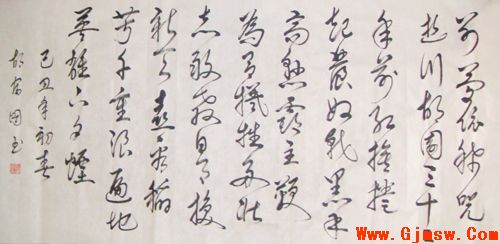 别梦依稀咒
逝川故园三十
年前红旗卷
起农奴戟黑手
高悬霸主鞭
为有牺牲多壮
志敢教日月换
新天喜看稻
菽千重浪遍地
英雄下夕烟
己丑年初春
胡富国书
www.Gjmsw.com